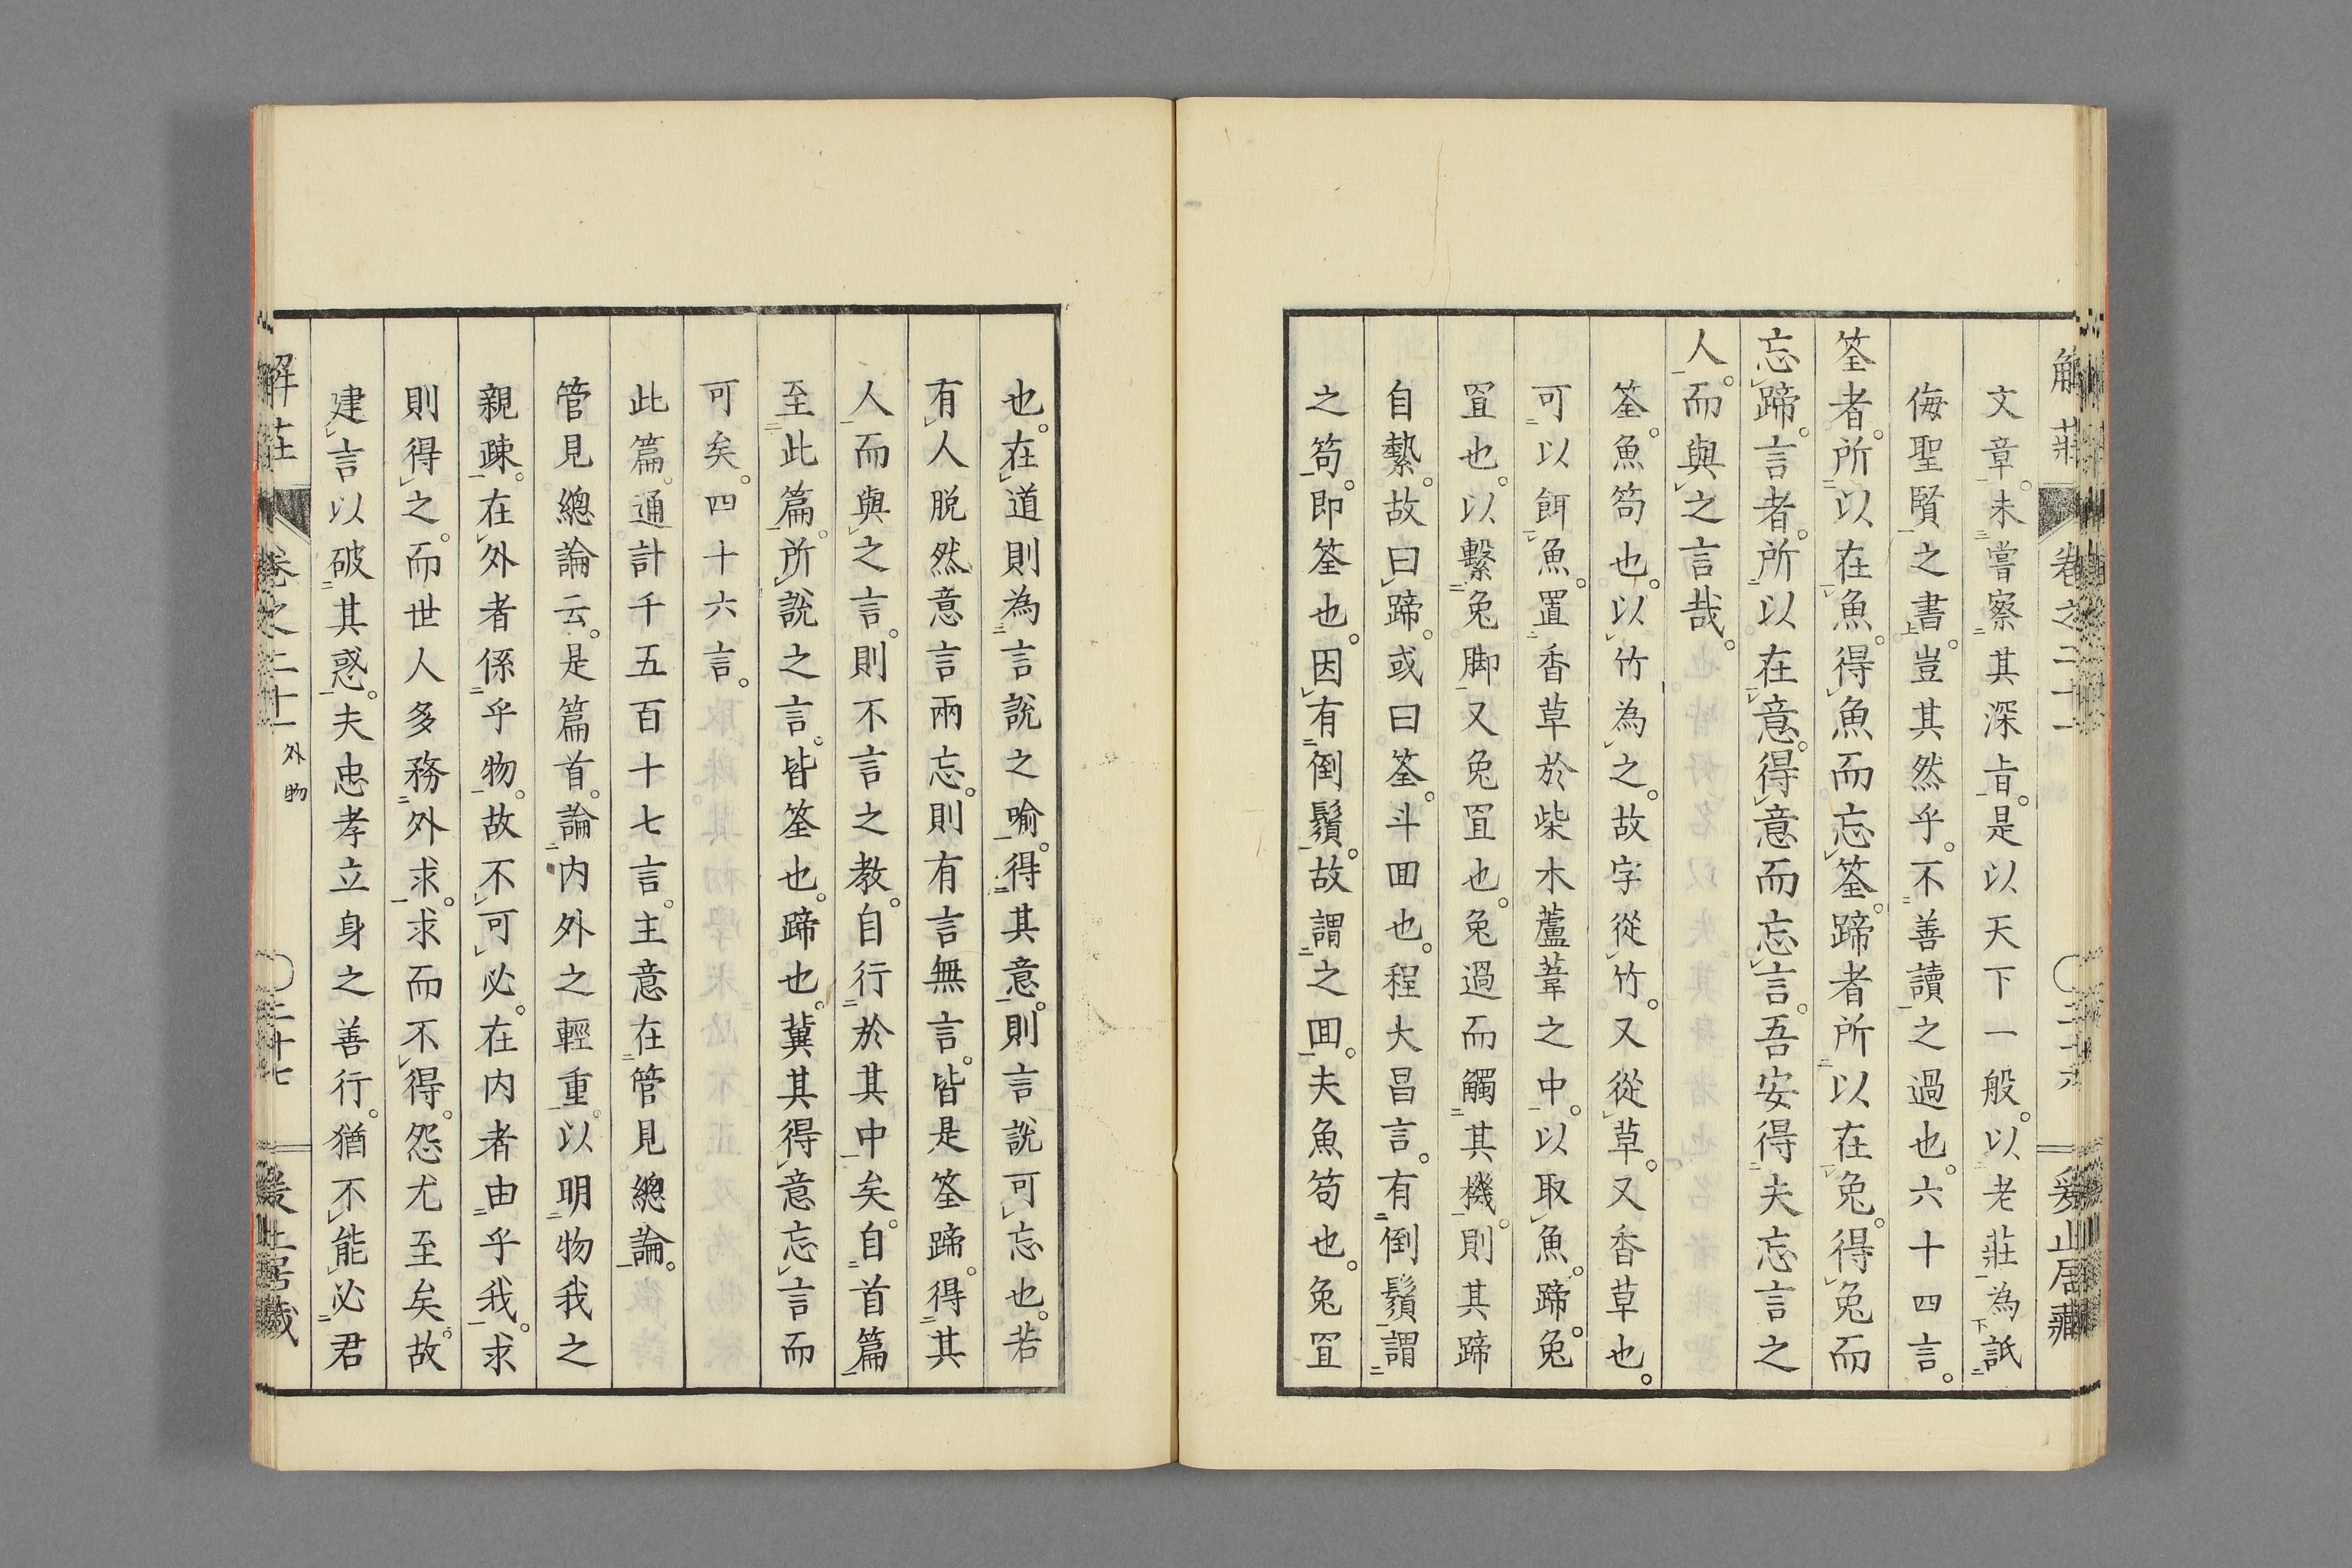 解莊 卷之二十一 二十六 爰止居藏
文章。未嘗察其深旨。是以天下一般。以老莊為詆
侮聖賢之書。豈其然乎。不善讀之過也。六十四言。
筌者。所以在魚。得魚而忘筌。蹄者所以在兔。得兔而
忘蹄。言者。所以在意。得意而忘言。吾安得夫忘言之
人。而與之言哉。
筌。魚笱也。以竹為之。故字從竹。又從草。又香草也。
可以餌魚。置香草於柴木蘆葦之中。以取魚。蹄。兔
罝也。以繫兔脚又兔罝也。兔過而觸其機。則其蹄
自縶。故曰蹄。或曰筌。斗回也。程大昌言。有倒鬚謂
之笱。即筌也。因有倒鬚。故謂之回。夫魚笱也。兔罝
也。在道則為言說之喻。得其意。則言說可忘也。若
有人脫然意言兩忘。則有言無言。皆是筌蹄。得其
人而與之言。則不言之教。自行於其中矣。自首篇
至此篇。所說之言。皆筌也。蹄也。冀其得意忘言而
可矣。四十六言。
此篇。通計千五百十七言。主意在管見總論。
管見總論云。是篇首。論內外之輕重。以明物我之
親疎。在外者係乎物。故不可必。在內者由乎我。求
則得之。而世人多務外求。求而不得。怨尤至矣。故
建言以破其惑。夫忠孝立身之善行。猶不能必君
解莊 卷之二十一 外物 二十七 爰止居藏